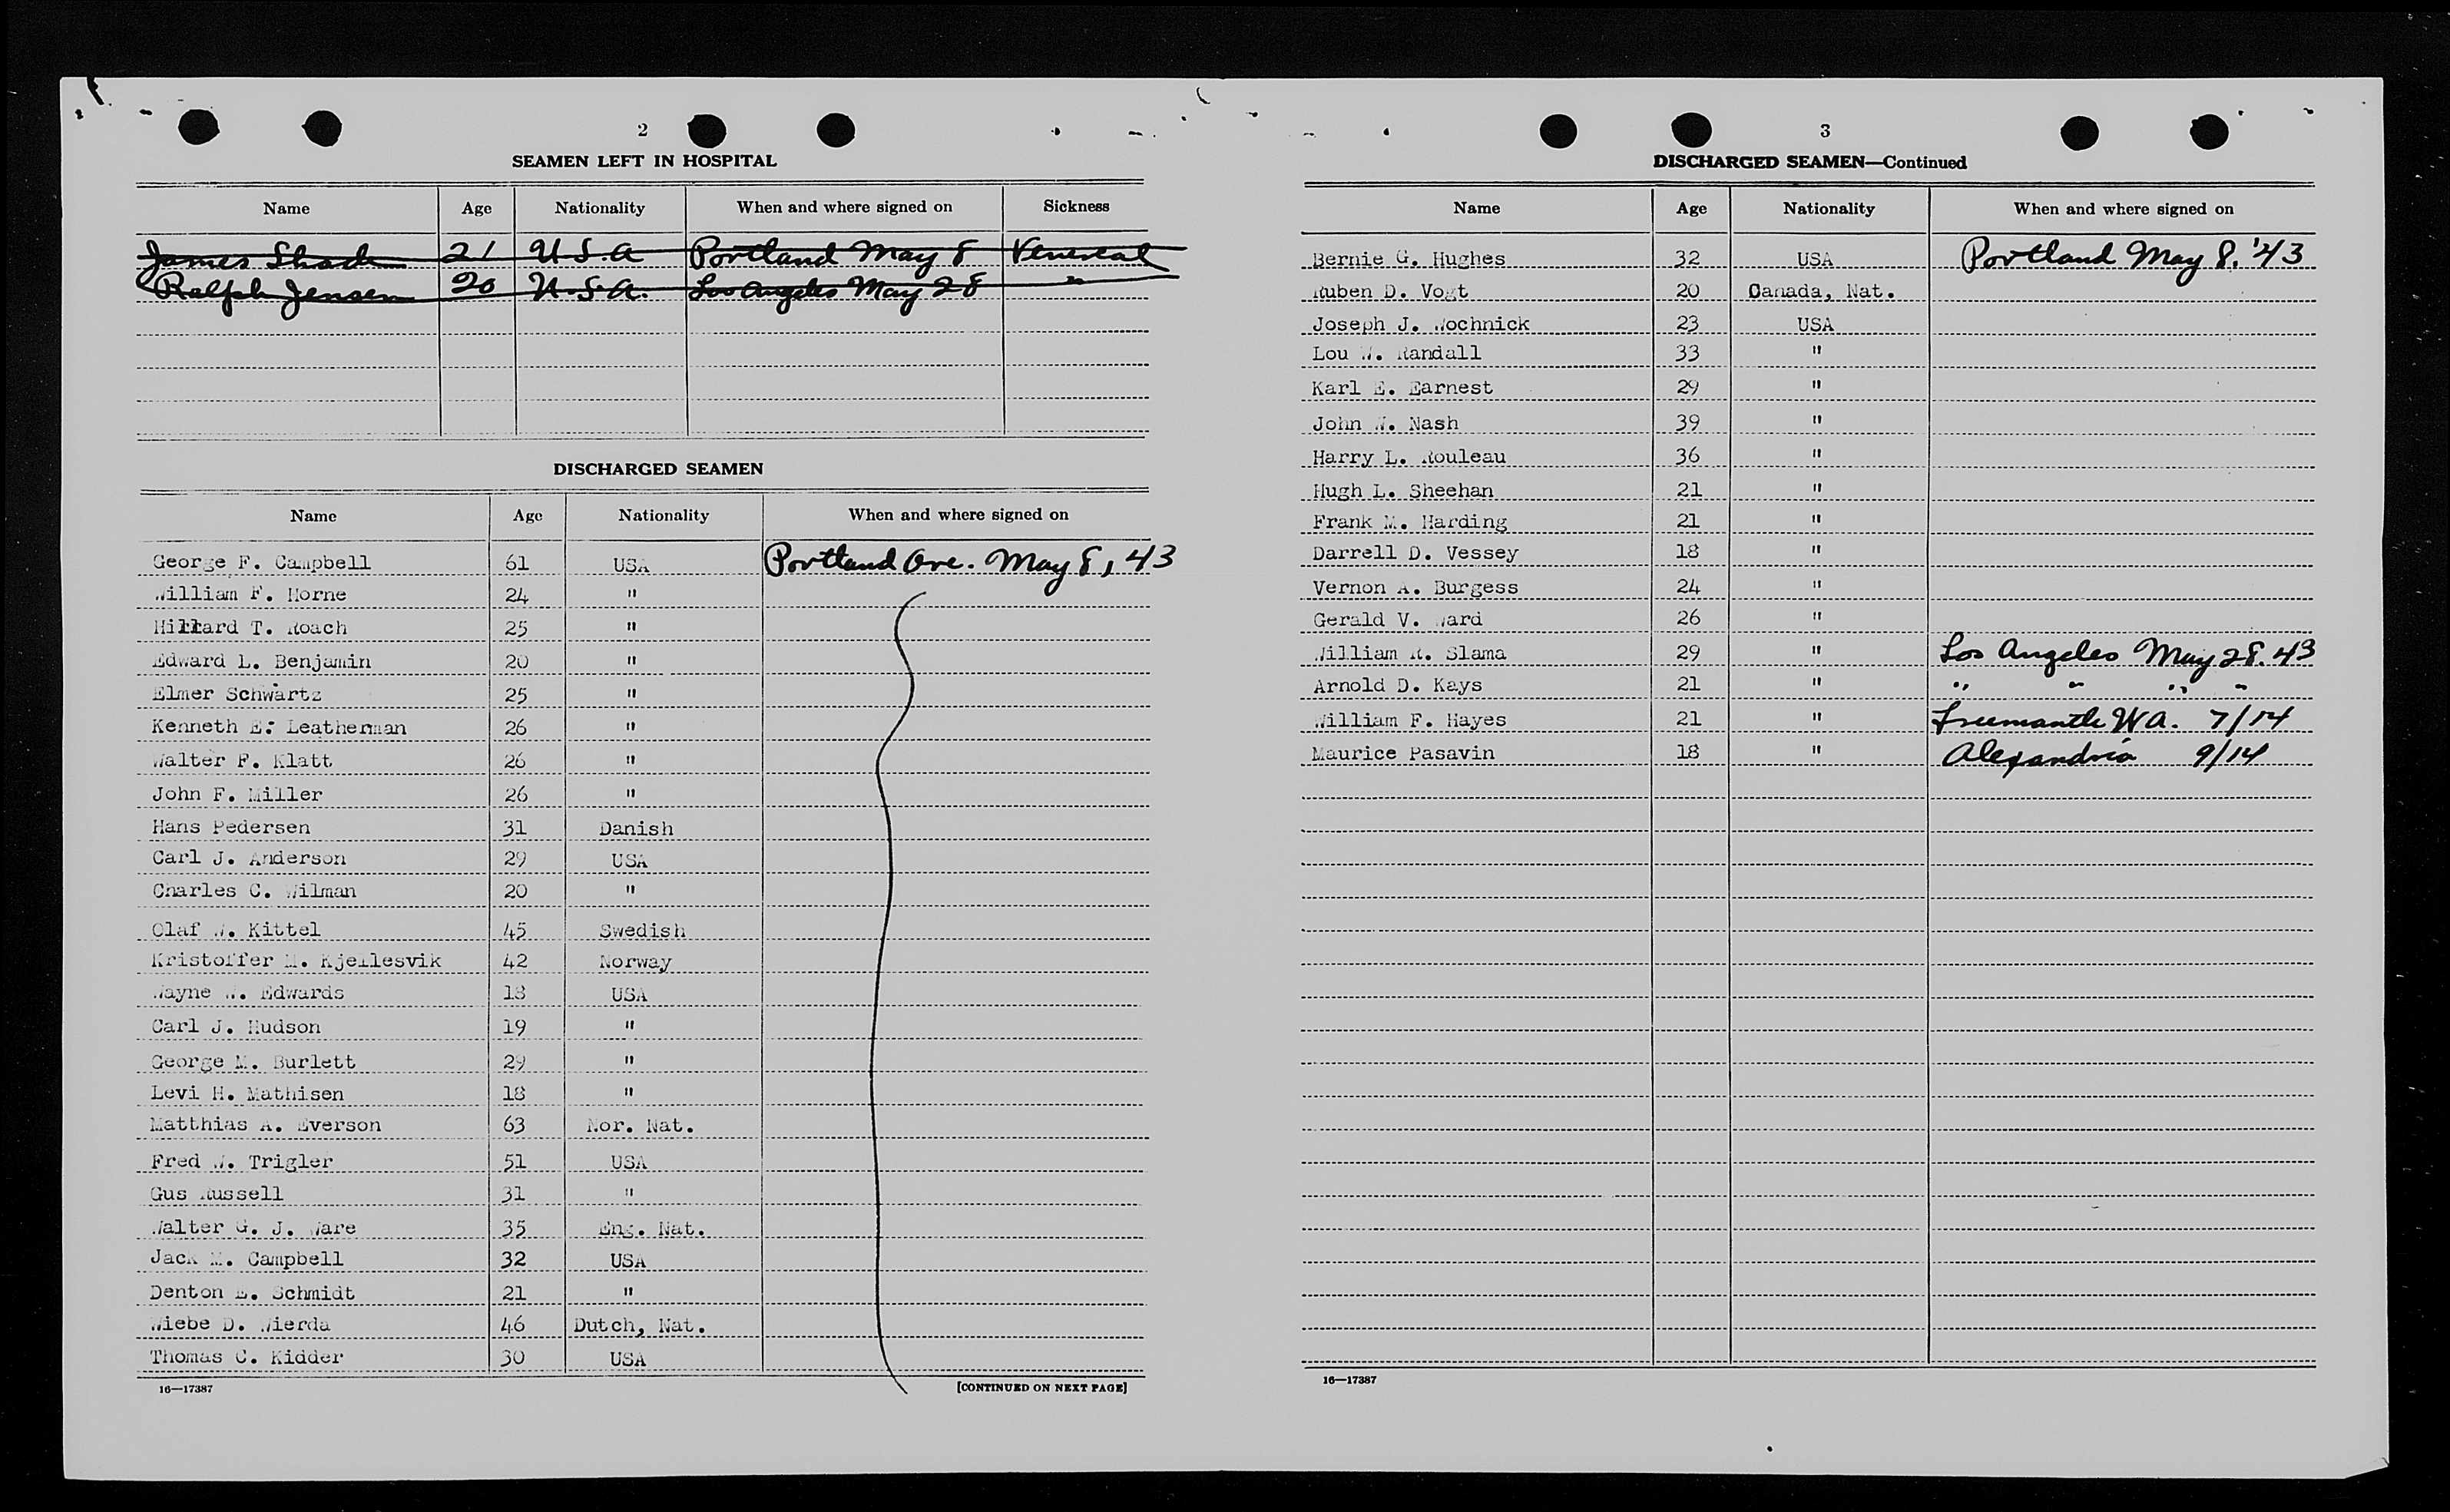 2
SEAMEN LEFT IN HOSPITAL
Name Age Nationality When and where signed on Sickness
James Shack 21 U.S.A Portland May 8 Venereal
Ralph Jensen 20 U.S.A. Los Angeles May 28 "
DISCHARGED SEAMEN
Name Age Nationality When and where signed on
George F. Campbell 61 USA Portland Ore. May 8, 43
William F. Horne 24 "
Hillard T. Roach 25 "
Edward L. Benjamin 20 "
Elmer Schwartz 25 "
Kenneth E: Leatherman 26 "
Walter F. Klatt 26 "
John F. Miller 26 "
Hans Pedersen 31 Danish
Carl J. Anderson 29 USA
Charles C. Wilman 20 "
Olaf W. Kittel 45 Swedish
Kristoffer M. Kjellesvik 42 Norway
Wayne W. Edwards 18 USA
Carl J. Hudson 19 "
George M. Burlett 29 "
Levi H. Mathisen 18 "
Matthias A. Everson 63 Nor. Nat.
Fred W. Trigler 51 USA
Gus Russell 31 "
Walter G. J. Ware 35 Eng. Nat.
Jack M. Campbell 32 USA
Denton E. Schmidt 21 "
Wiebe D. Wierda 46 Dutch, Nat.
Thomas C. Kidder 30 USA
16—17387 [CONTINUED ON NEXT PAGE]
3
DISCHARGED SEAMEN—Continued
Name Age Nationality When and where signed on
Bernie G. Hughes 32 USA Portland May 8, '43
Ruben D. Vogt 20 Canada, Nat.
Joseph J. Wochnick 23 USA
Lou W. Randall 33 "
Karl E. Earnest 29 "
John W. Nash 39 "
Harry L. Rouleau 36 "
Hugh L. Sheehan 21 "
Frank M. Harding 21 "
Darrell D. Vessey 18 "
Vernon A. Burgess 24 "
Gerald V. Ward 26 "
William R. Slama 29 " Los Angeles May 28. 43
Arnold D. Kays 21 " " " " "
William F. Hayes 21 " Freemantle WA. 7/14
Maurice Pasavin 18 " Alexandria 9/14
16—17387